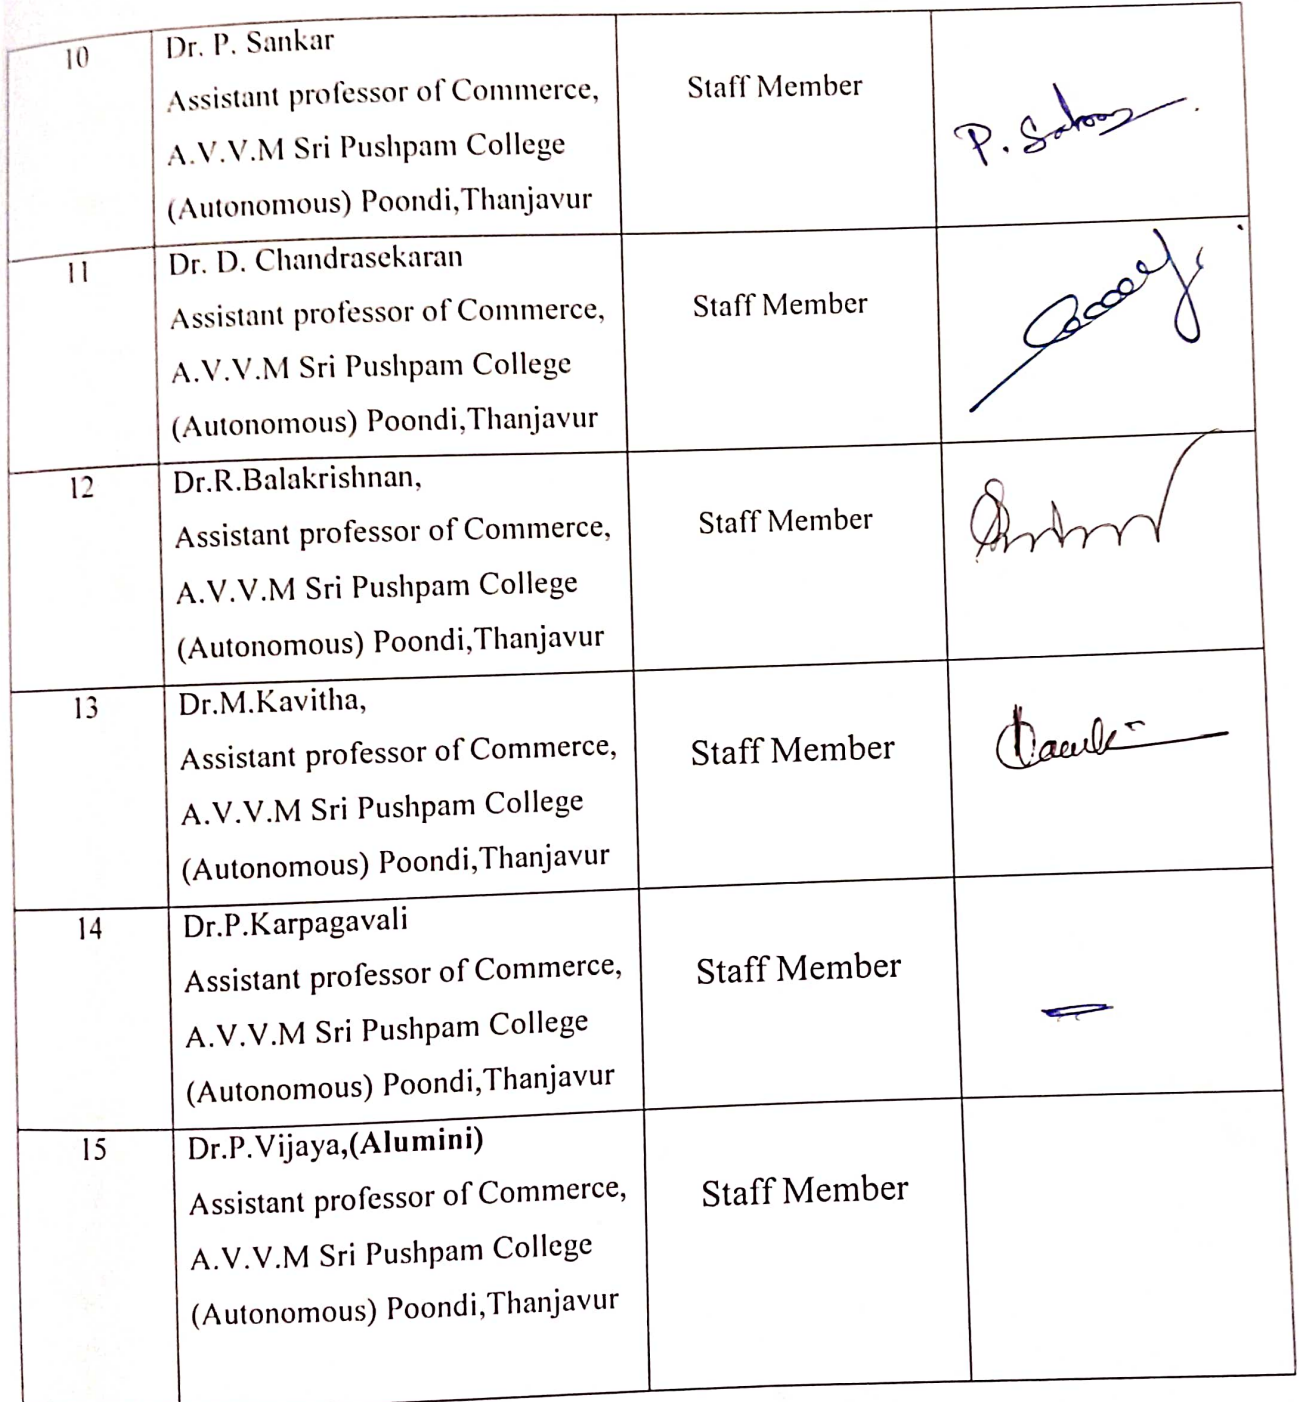 10
Dr. P. Sankar
Assistant professor of Commerce,
A.V.V.M Sri Pushpam College
(Autonomous) Poondi,Thanjavur
Staff Member
11
Dr. D. Chandrasekaran
Assistant professor of Commerce,
A.V.V.M Sri Pushpam College
(Autonomous) Poondi,Thanjavur
Staff Member
12
Dr.R.Balakrishnan,
Assistant professor of Commerce,
A.V.V.M Sri Pushpam College
(Autonomous) Poondi,Thanjavur
Staff Member
13
Dr.M.Kavitha,
Assistant professor of Commerce,
A.V.V.M Sri Pushpam College
(Autonomous) Poondi,Thanjavur
Staff Member
14
Dr.P.Karpagavali
Assistant professor of Commerce,
A.V.V.M Sri Pushpam College
(Autonomous) Poondi,Thanjavur
Staff Member
15
Dr.P.Vijaya,(Alumini)
Assistant professor of Commerce,
A.V.V.M Sri Pushpam College
(Autonomous) Poondi,Thanjavur
Staff Member